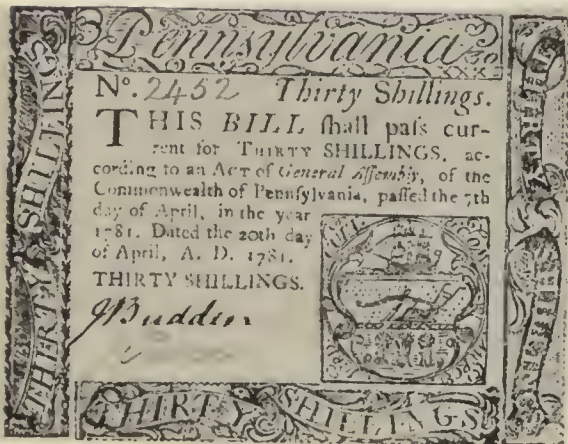 Pennsylvania
THIRTY SHILLINGS
No. 2452 Thirty Shillings.
THIS BILL ſhall paſs cur-
rent for THIRTY SHILLINGS, ac-
cording to an ACT of General Aſſembly, of the
Commonwealth of Pennſylvania, paſſed the 7th
day of April, in the year
1781. Dated the 20th day
of April, A. D. 1781.
THIRTY SHILLINGS.
J Budden
THIRTY SHILLINGS